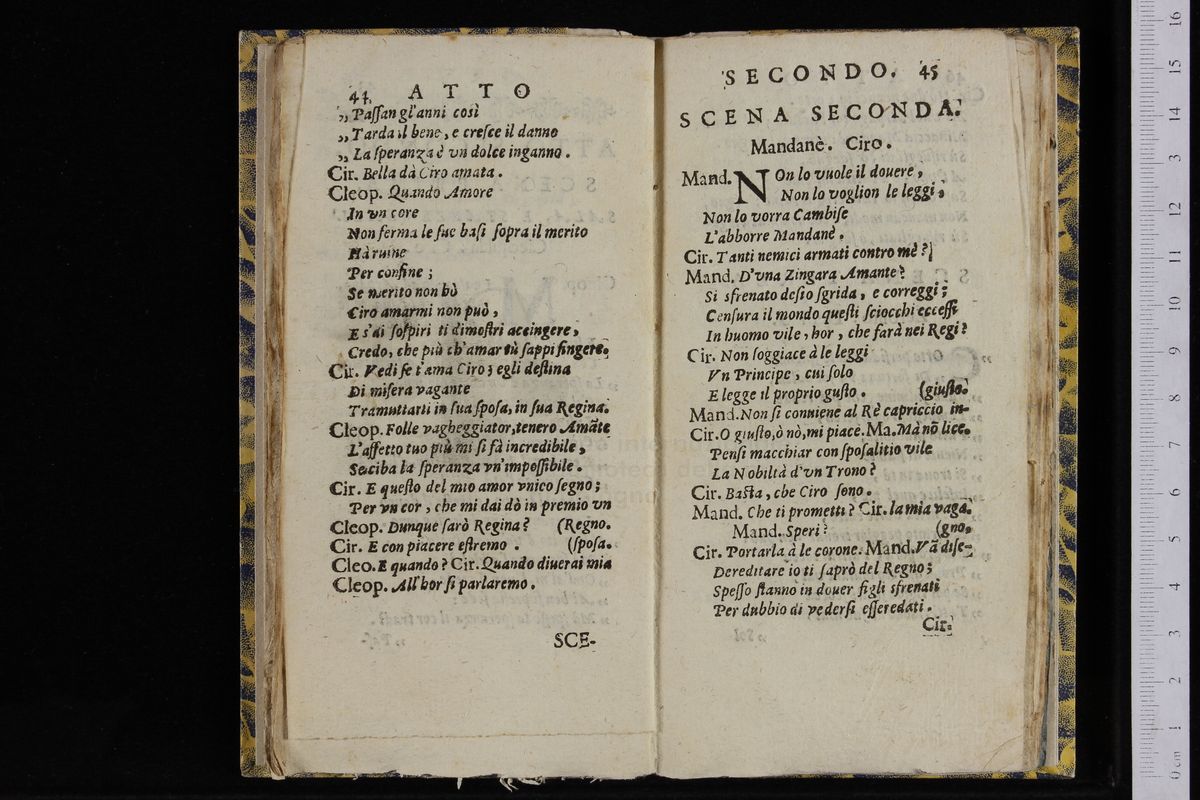 44 ATTO
„ Paſſan gl'anni così
„ Tarda il bene, e creſce il danno
„ La ſperanza è vn dolce inganno.
Cir. Bella dà Ciro amata.
Cleop. Quando Amore
In vn core
Non ferma le ſue baſi ſopra il merito
Hà ruine
Per confine ;
Se merito non hò
Ciro amarmi non può,
E s'ai ſoſpiri ti dimoſtri accingere,
Credo, che più ch'amar tù ſappi fingere.
Cir. Vedi ſe t'ama Ciro; egli deſtina
Di miſera vagante
Tramuttarti in ſua ſpoſa, in ſua Regina.
Cleop. Folle vagheggiator, tenero Amāte
L'affetto tuo più mi ſi fà incredibile,
Se ciba la ſperanza vn'impoſſibile.
Cir. E queſto del mio amor vnico ſegno;
Per vn cor, che mi dai dò in premio vn
Cleop. Dunque ſarò Regina? (Regno.
Cir. E con piacere eſtremo. (ſpoſa.
Cleo. E quando? Cir. Quando diuerai mia
Cleop. All'hor ſi parlaremo.
SCE-
SECONDO. 45
SCENA SECONDA.
Mandanè. Ciro.
Mand. NOn lo vuole il douere,
Non lo voglion le leggi,
Non lo vorra Cambiſe
L'abborre Mandanè.
Cir. Tanti nemici armati contro mè?
Mand. D'vna Zingara Amante?
Si sfrenato deſio ſgrida, e correggi;
Cenſura il mondo queſti ſciocchi ecceſſi
In huomo vile, hor, che farà nei Regi?
Cir. Non ſoggiace à le leggi
Vn Principe, cui ſolo
E legge il proprio guſto. (giuſto.
Mand. Non ſi conuiene al Rè capriccio in-
Cir. O giuſto, ò nò, mi piace. Ma. Mà nō lice.
Penſi macchiar con ſpoſalitio vile
La Nobiltà d'vn Trono?
Cir. Baſta, che Ciro ſono.
Mand. Che ti prometti? Cir. la mia vaga.
Mand. Speri? (gno.
Cir. Portarla à le corone. Mand. Vā diſe-
Dereditare io ti ſaprò del Regno;
Speſſo ſtanno in douer figli sfrenati
Per dubbio di vederſi eſſeredati.
Cir.